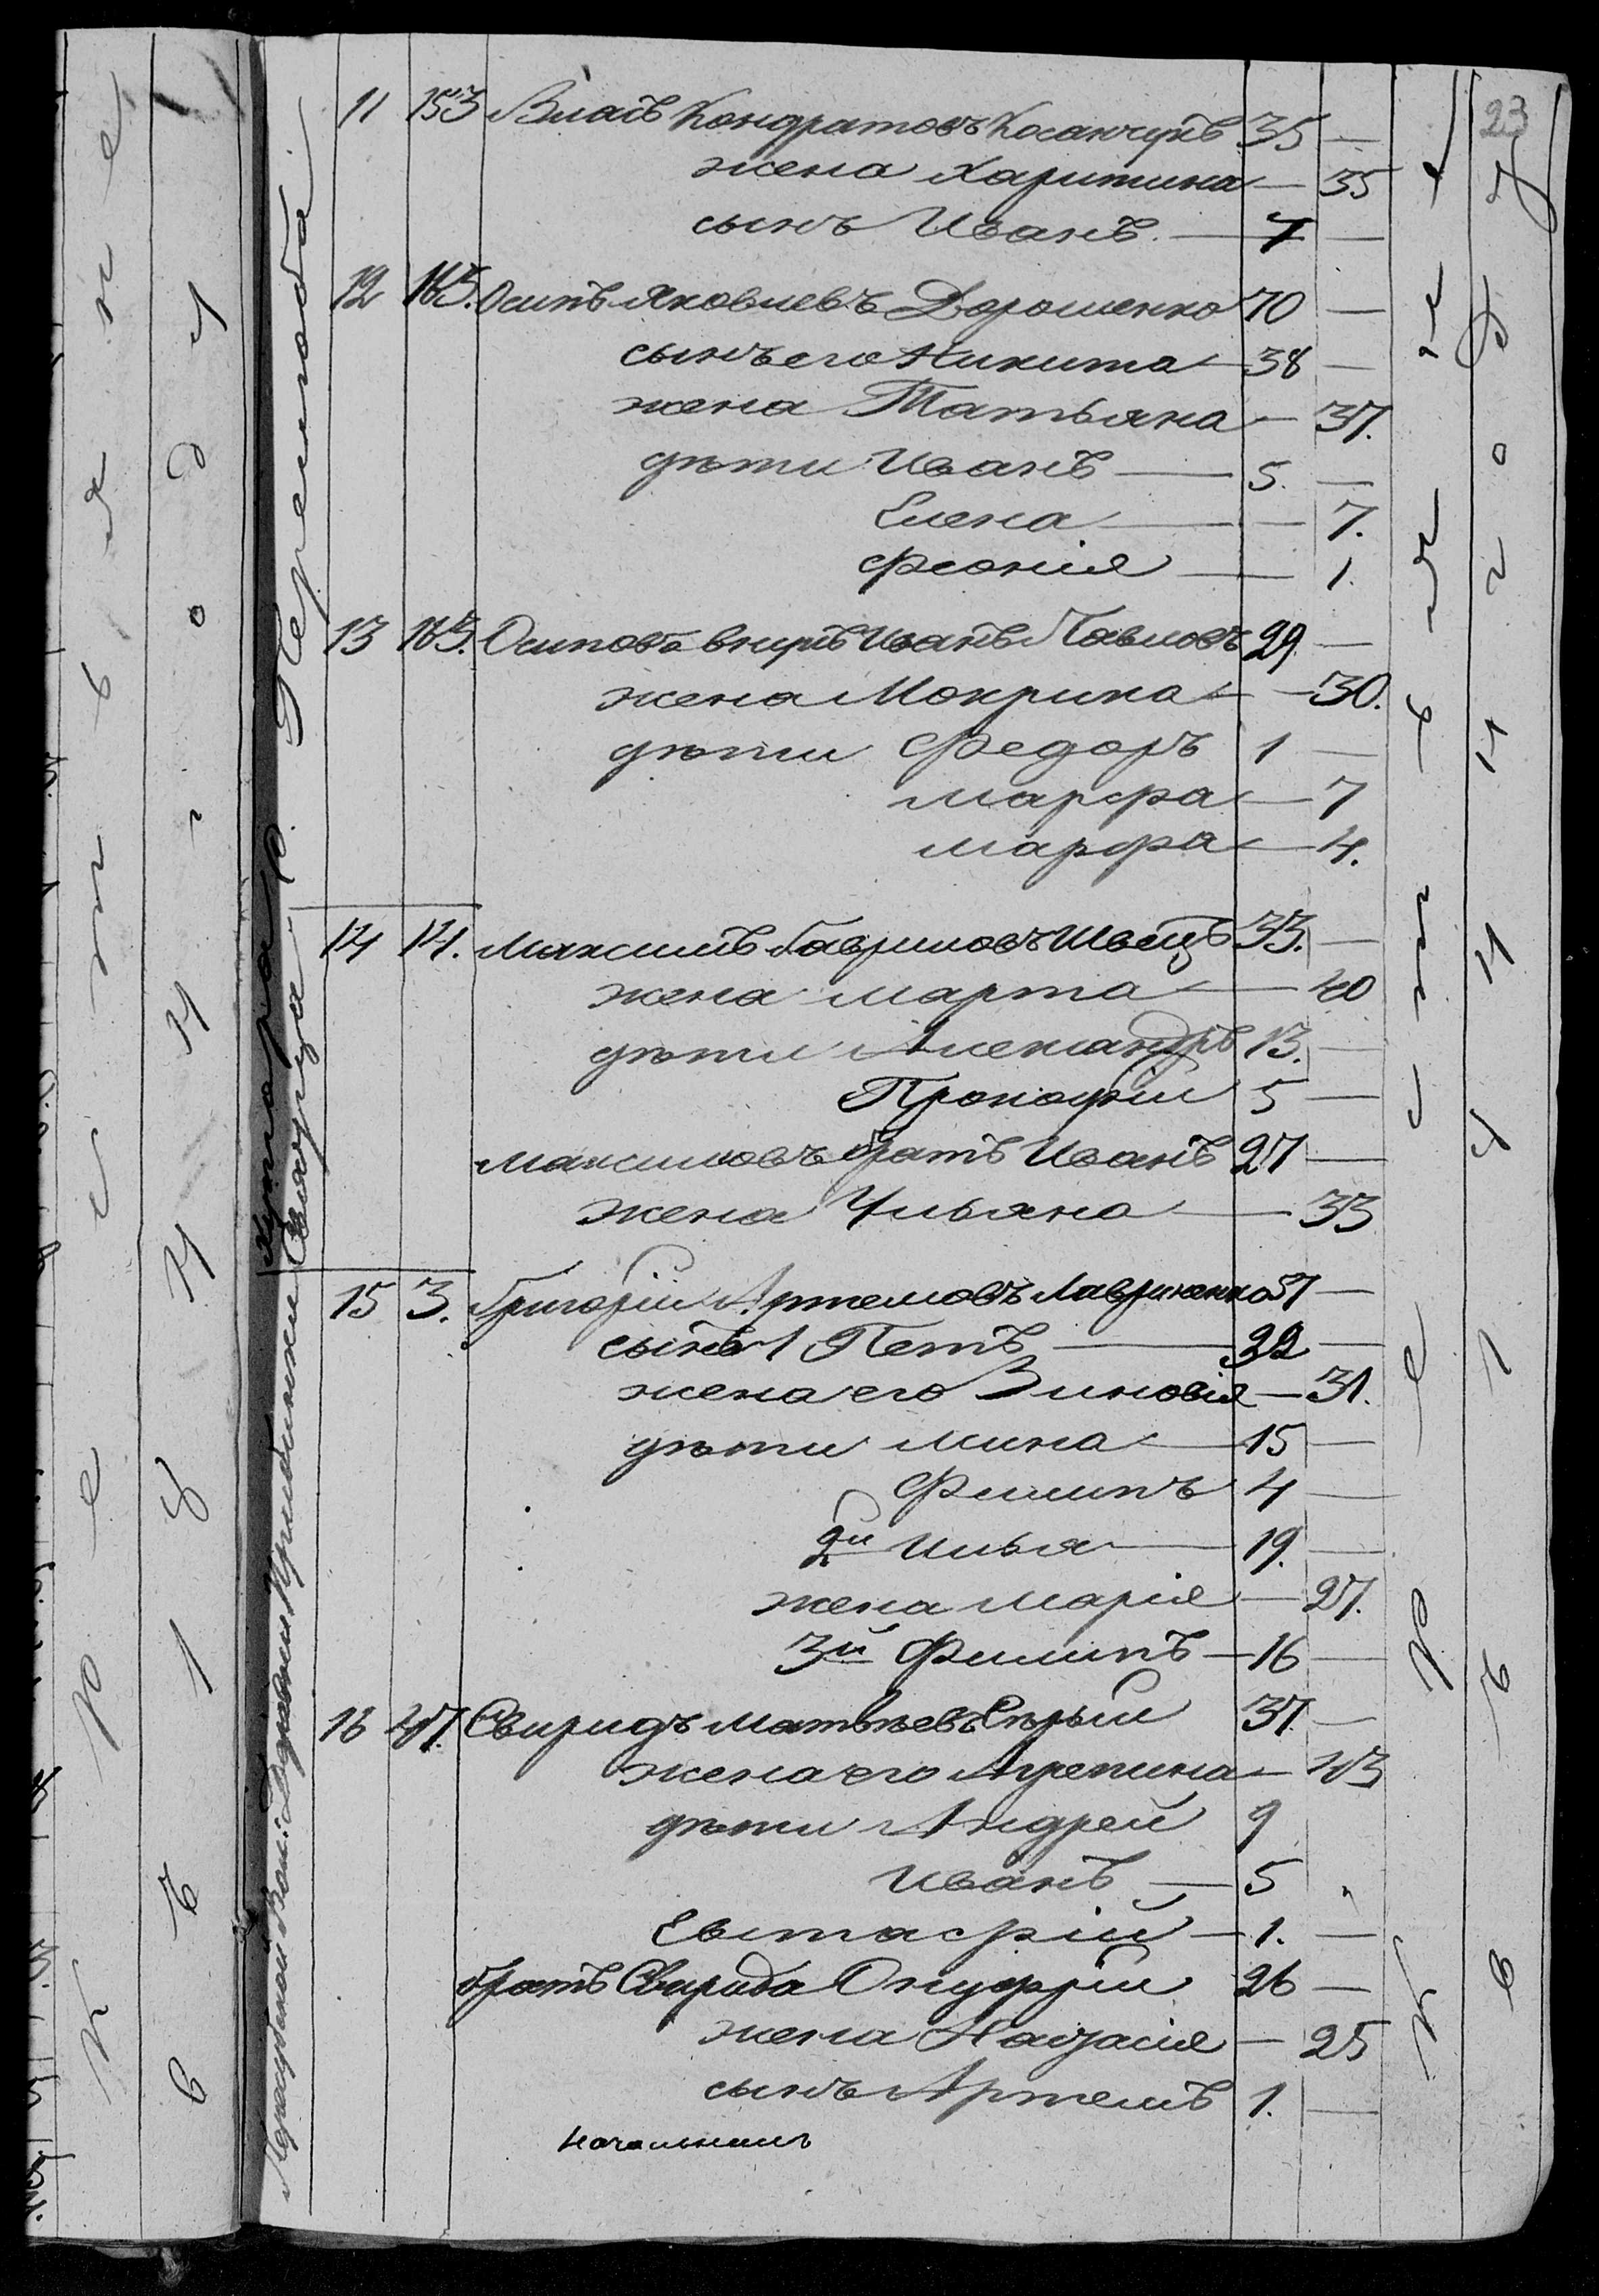 23
11 153 Власъ Кондратовъ Косанчукъ 35 —
жена Харитина — 35
сынъ Иванъ — 7 —
12 165. Осипъ Яковлевъ Дорошенко 70 —
сынъ его Никита — 38 —
жена Татьяна — 37.
дѣти Иванъ — 5. —
Елена — — 7.
Феонія — 1.
13 165. Осиповъ внукъ Иванъ Павловъ 29 —
жена Мокрина — — 30.
дѣти Федоръ 1 —
Марфа — 7
Марфа — 4.
14 14. Максимъ Гавриловъ Швецъ 33. —
жена Марта — 40
дѣти Александръ 13. —
Прокофій 5 —
Максимовъ братъ Иванъ 27 —
жена Ульяна — 33
15 3. Григорій Артемовъ Лавриненко 57 —
сынъ 1 Петъ — 32 —
жена его Зиновія — 31.
дѣти Мина — 15 —
Филипъ 4 —
2й Илья — 19. —
жена Марія — 27.
3й Филипъ — 16 —
16 47. Свиридъ Матвѣевъ Сѣрый 37. —
жена его Агрепина — 43
дѣти Андрей 9
Иванъ — 5
Евстафій — 1. —
братъ Свирида Онуфрій 26 —
жена Наталія — 25
сынъ Артемъ 1. —
Хутора р. Терешкова
Свинарца
крестьяне